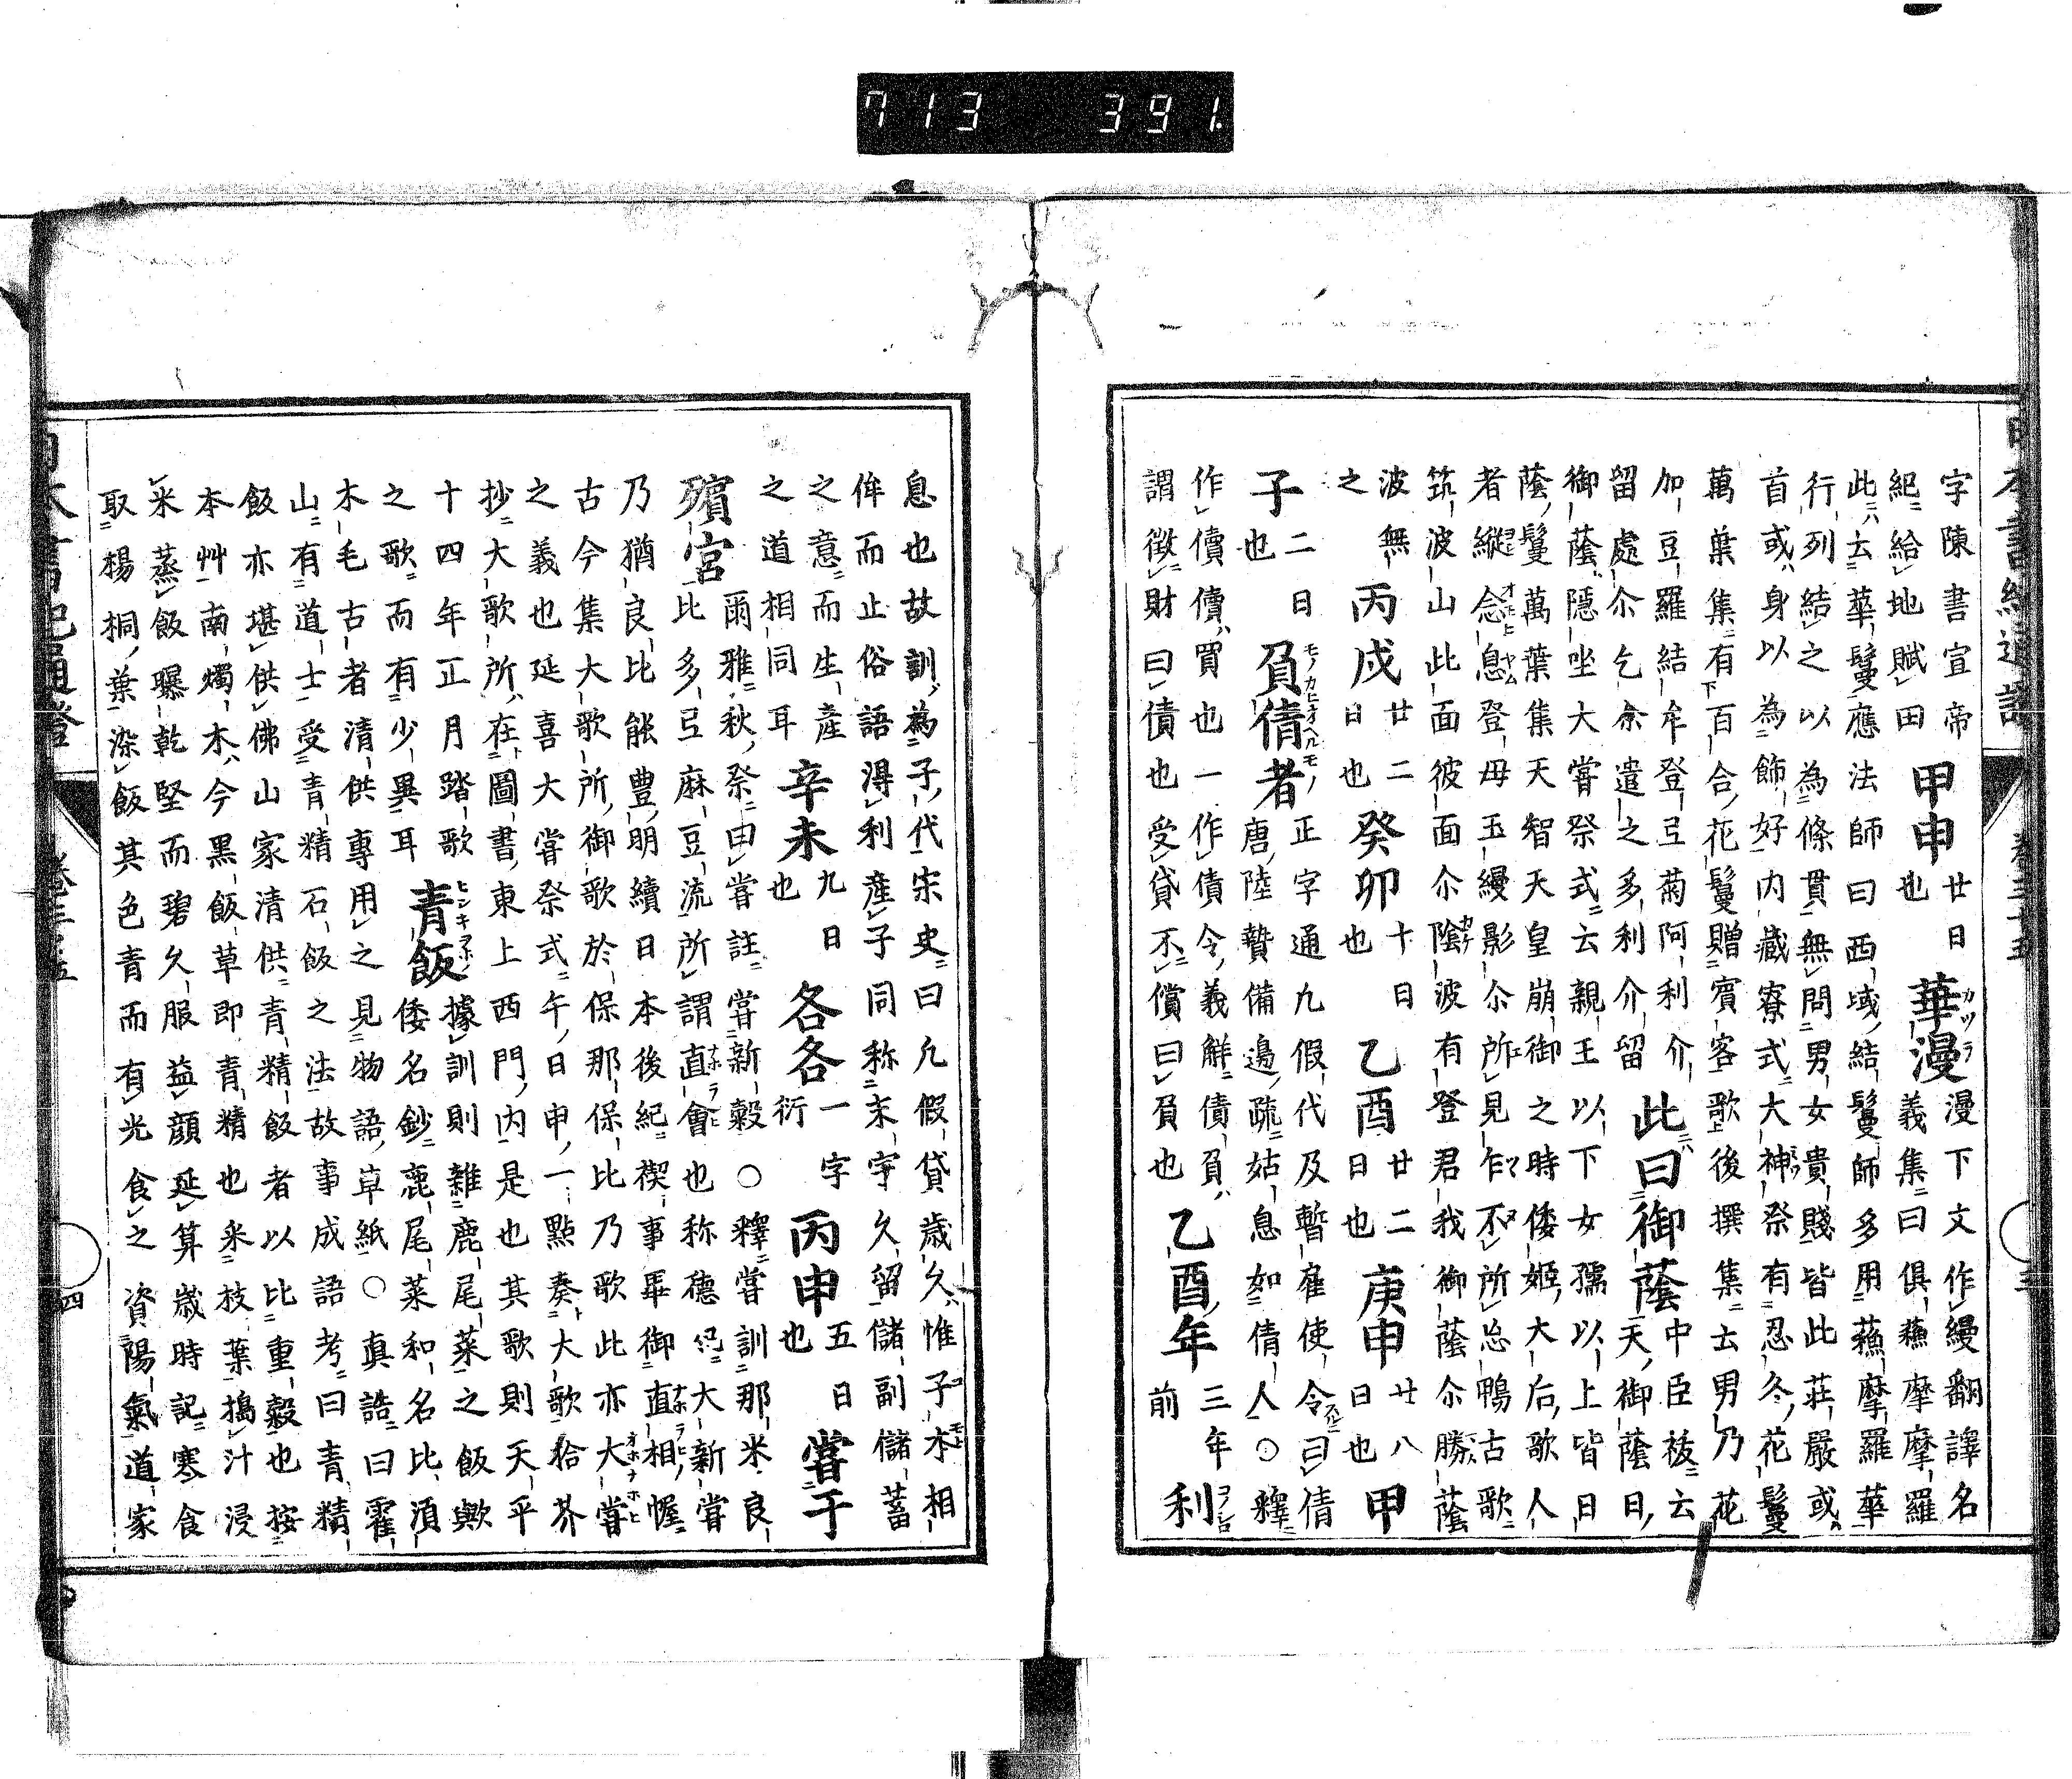 713 391.
字陳書宣帝
紀給地賦田甲申廿日也華漫カツラ漫下文作縵翻譯名
義集曰俱蘓摩摩羅
此ニハ云華鬘應法師曰西域結鬘師多用蘓摩羅華
行列結之以為條貫無問男女貴賤皆此莊嚴或ハ
首或ハ身以為飾好内藏寮式大神祭有忍冬花鬘
萬葉集有百合花鬘贈賓客歌後撰集云男乃花
加豆羅結牟登弖菊阿利介留此ニハ曰御蔭中臣祓云
天御蔭日
御蔭隱坐大嘗祭式云親王以下女孺以上皆日
蔭鬘萬葉集天智天皇崩御之時倭姬大后歌人
者縱念息登母玉縵影尓所見乍不所忘鴨古歌
筑波山此面彼面尓陰波有登君我御蔭尓勝蔭
波無丙戌廿二日也癸卯十日也乙酉廿二日也庚申廿八日也甲
子二日也負債者モノカヒオヘルモノ正字通九假代及暫雇使令曰倩
唐陸贄備邊疏姑息如倩人○釋
作債債買也一作債令義解債負
謂徴財曰債也受貸不償曰負也乙酉年三年前利コノシロ
息也故訓為子代宋史曰凢假貸歲久惟子本相
侔而止俗語淂利産子同称末宇久留儲副儲蓄
之意而生産
之道相同耳辛未九日也各各一字衍丙申五日也嘗于
殯宮爾雅秋祭曰嘗註嘗新穀○釋嘗訓那米良
比多弖麻豆流所謂直會ナホラヒ也称德紀大新嘗
乃猶良比能豊明續日本後紀禊事畢御直相ナホラヒ幄
古今集大歌所御歌於保那保比乃歌此亦大嘗オホナホヒ
之義也延喜大嘗祭式午日申一點奏大歌拾芥
抄大歌所在圖書東上西門内是也其歌則天平
十四年正月踏歌
之歌而有少異耳青飯ヒシキアホノ據訓則雜鹿尾菜之飯歟
倭名鈔鹿尾菜和名比須
木毛古者清供專用之見物語草紙○真誥曰霍
山有道士受青精石飯之法故事成語考曰青精
飯亦堪供佛山家清供青精飯者以比重穀也按
本艸南燭木今黒飯草即青精也采枝葉搗汁浸
米蒸飯曝乾堅而碧久服益顔延算歲時記寒食
取楊桐葉染飯其色青而有光食之資陽氣道家